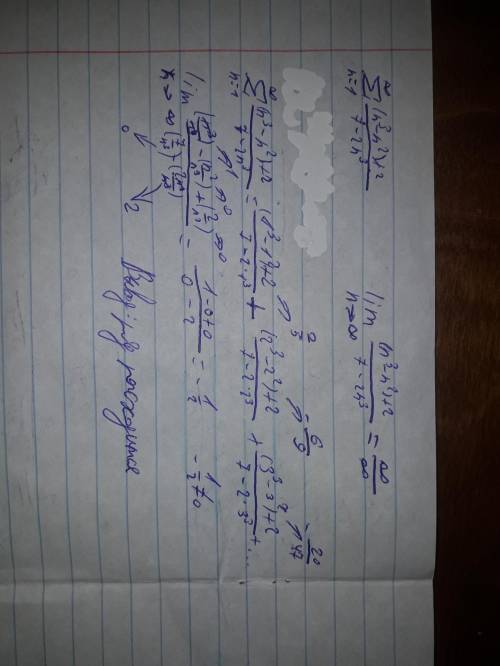 ∑_{n=1}^{∞} (n³-n²)+2 / 7-2n³    lim_{n→∞} (n³-n²)+2 / 7-2n³ = ∞/∞
∑_{n=1}^{∞} (n³-n²)+2 / 7-2n³ = (1³-1²)+2 / 7-2·1³ + (2³-2²)+2 / 7-2·2³ + (3³-3²)+2 / 7-2·3³ + ...
2/5    -6/9    -20/47
lim_{n→∞} (n³/n³)-(n²/n³)+(2/n³) / (7/n³)-(2n³/n³) = 1-0+0 / 0-2 = -1/2    -1/2≠0
0    2    расходится